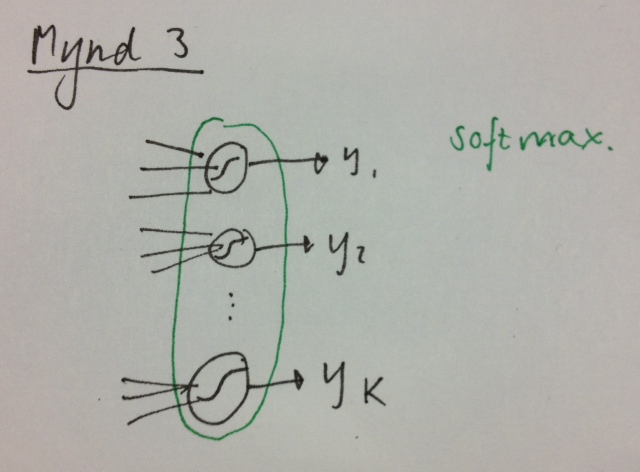 Mynd 3
softmax.
y₁
y₂
⋮
y_K